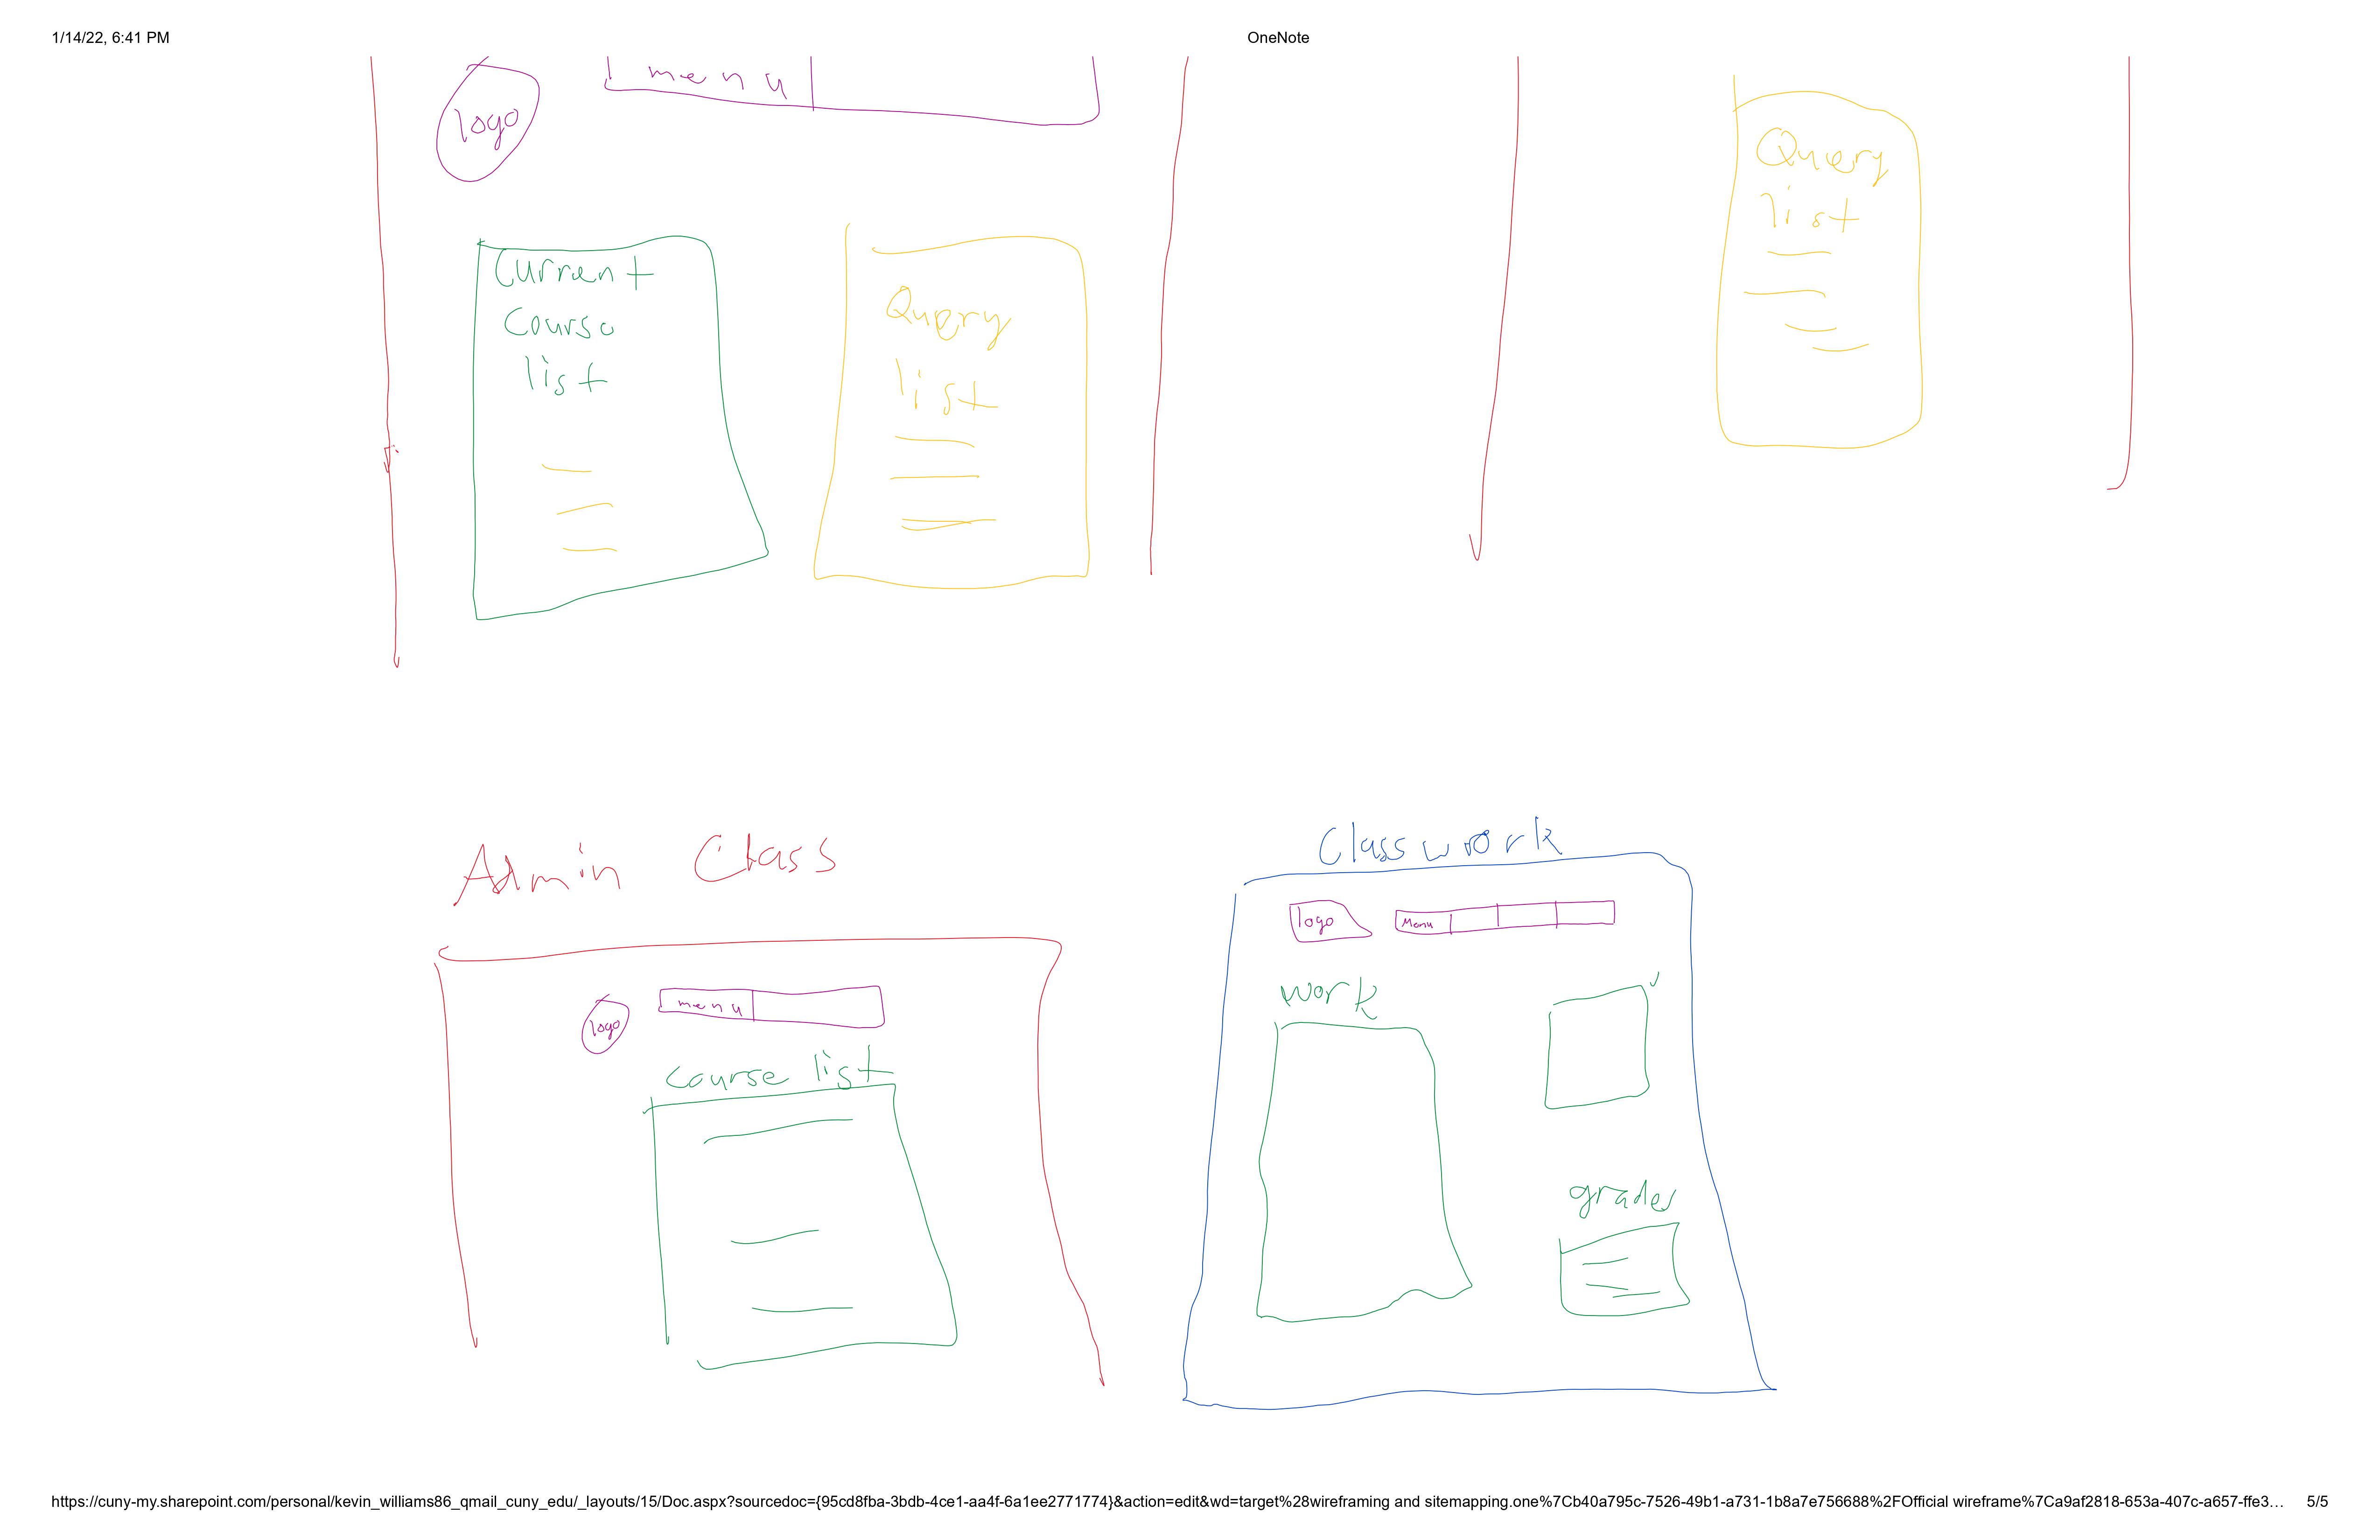 1/14/22, 6:41 PM
OneNote
menu
logo
Current
Course
list
Query
list
Query
list
Admin Class
logo
menu
course list
Classwork
logo
Menu
work
grades
https://cuny-my.sharepoint.com/personal/kevin_williams86_qmail_cuny_edu/_layouts/15/Doc.aspx?sourcedoc={95cd8fba-3bdb-4ce1-aa4f-6a1ee2771774}&action=edit&wd=target%28wireframing and sitemapping.one%7Cb40a795c-7526-49b1-a731-1b8a7e756688%2FOfficial wireframe%7Ca9af2818-653a-407c-a657-ffe3…
5/5